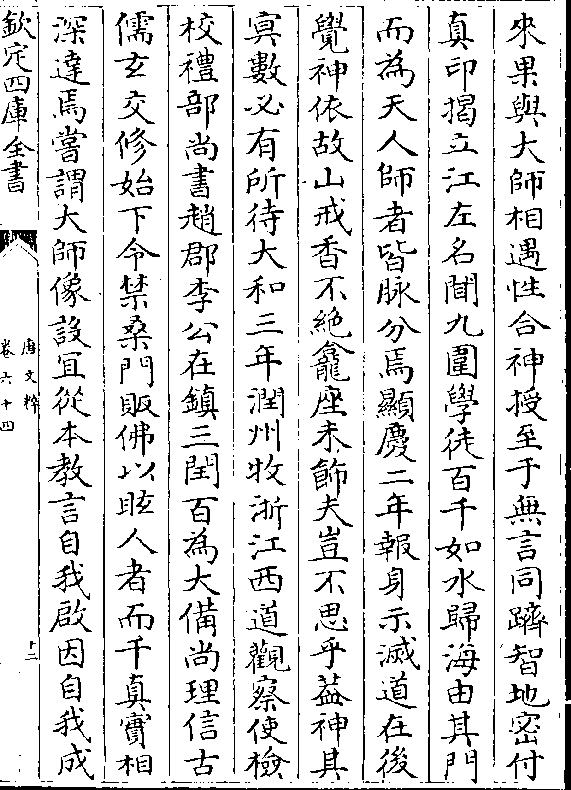 來果與大師相遇性合神授至于無言同躋智地密付
真印揭立江左名聞九圍學徒百千如水歸海由其門
而為天人師者皆脉分焉顯慶二年報身示滅道在後
覺神依故山戒香不絶龕座未飾夫豈不思乎葢神其
冥數必有所待大和三年潤州牧浙江西道觀察使檢
校禮部尚書趙郡李公在鎮三閏百為大備尚理信古
儒玄交修始下令禁桑門販佛以眩人者而千真實相
深達焉嘗謂大師像設宜從本教言自我啟因自我成
欽定四庫全書
唐文粹
卷六十四
十二